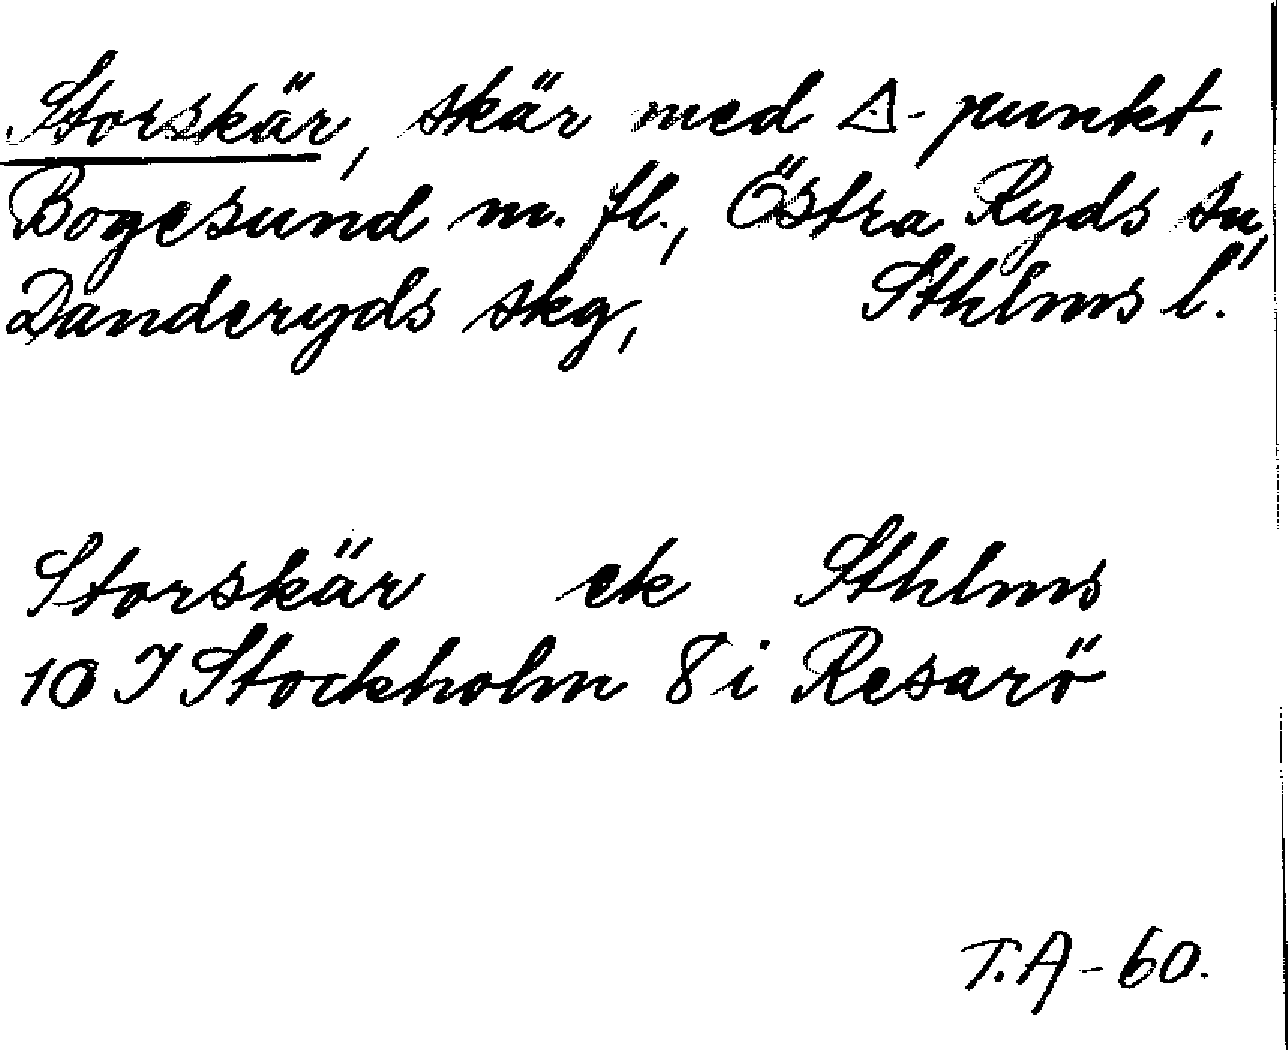 Storskär, skär med △-punkt.
Bogesund m. fl., Östra Ryds sn,
Danderyds skg, Sthlms l.
Storskär ek Sthlms
10 I Stockholm 8 i Resarö
T.A-60.